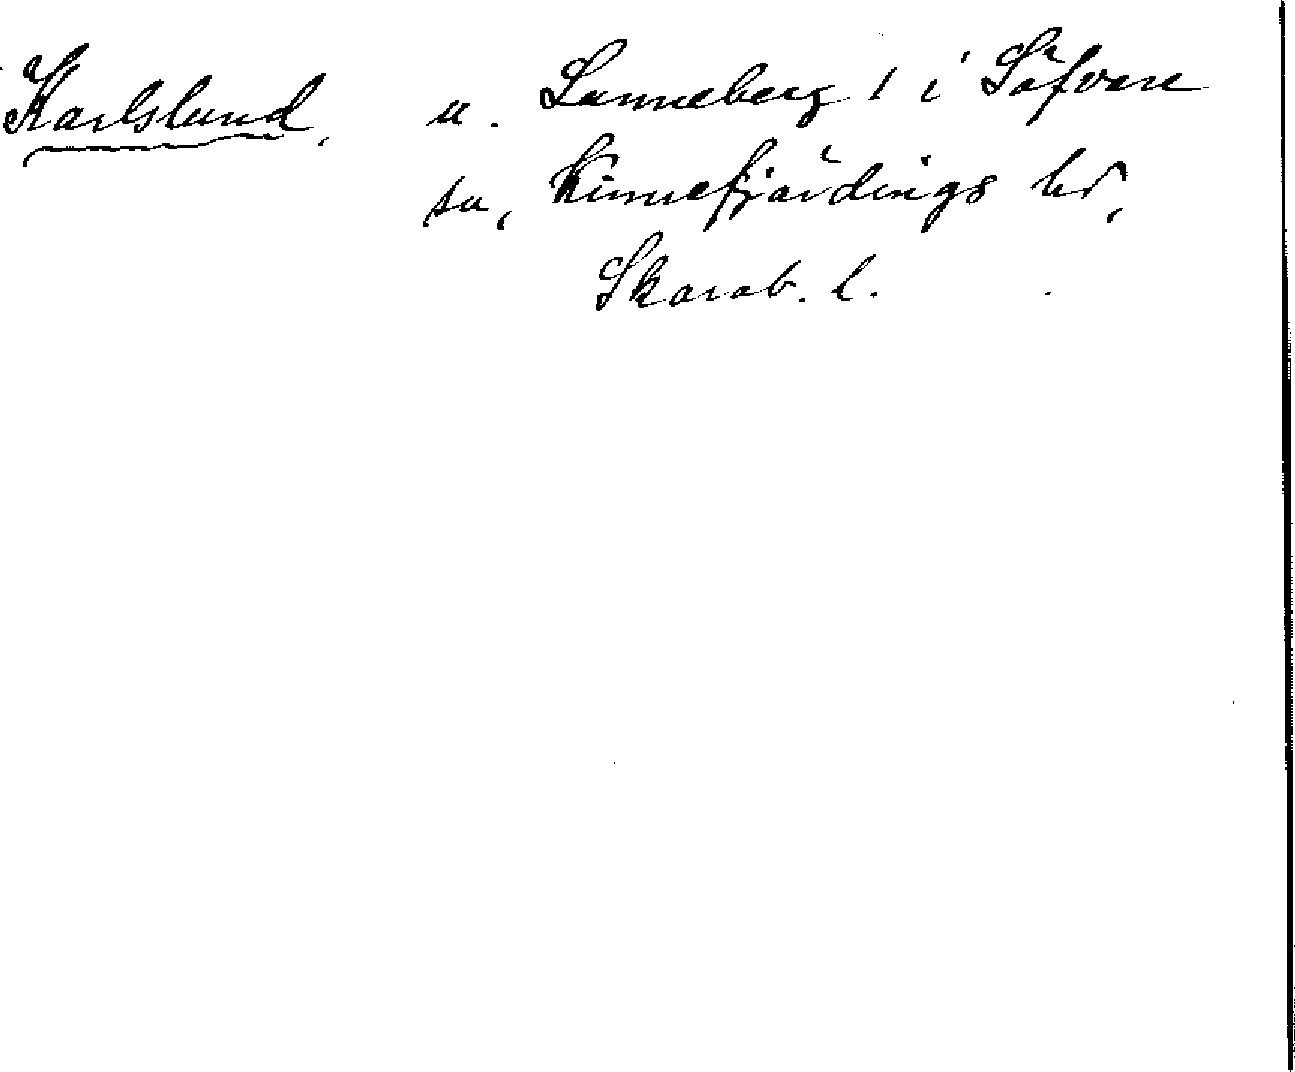 Karlslund, u. Lanneberg 1 i Säfvare
sn, Kinnefjärdings hd,
Skarab. l.